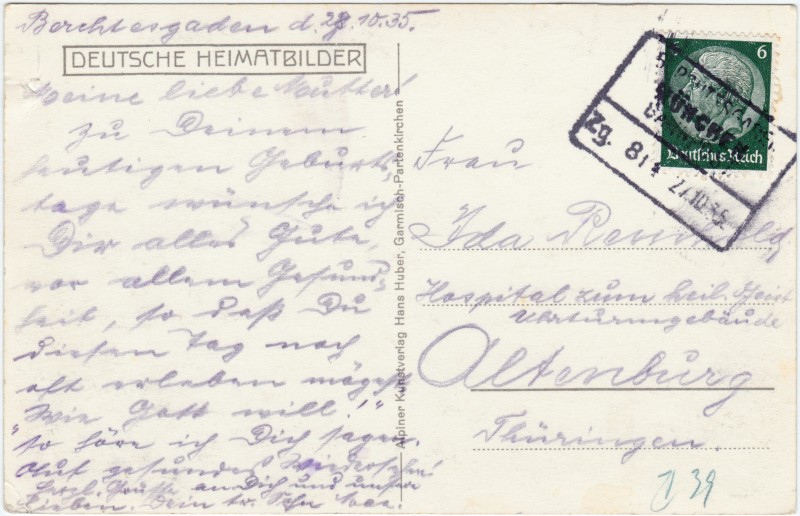 Berchtesgaden d. 28.10.35.
DEUTSCHE HEIMATBILDER
Meine liebe Mutter!
Zu Deinem
heutigen Geburts-
tage wünsche ich
Dir alles Gute,
vor allem Gesund-
heit, so daß Du
diesen Tag noch
oft erleben mögest
Wie Gott will!"
"so höre ich Dich sagen.
Auf gesundes Wiedersehn!
Herzl. Grüsse an Dich und unsere
Lieben. Dein tr. Sohn
Alpiner Kunstverlag Hans Huber, Garmisch-Partenkirchen
6
Deutsches Reich
MÜNCHEN
Zg. 814 27.10.35
Frau
Ida
Hospital zum heil. Geist
Vorturmgebäude
Altenburg
Thüringen.
39